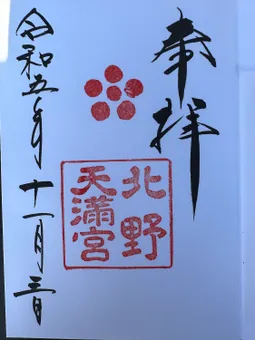 奉拝
北野
天満宮
令和五年十一月三日